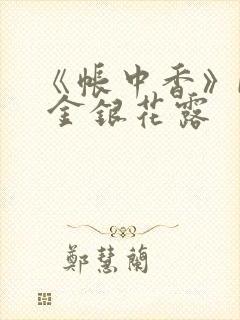 《帳中香》
金銀花露
鄭慧蘭